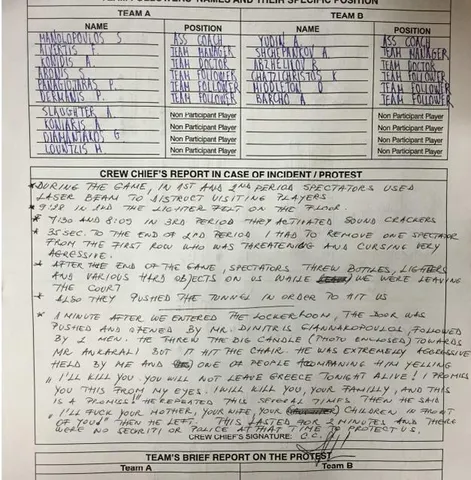 TEAM FOLLOWERS' NAMES AND THEIR SPECIFIC POSITION
TEAM A TEAM B
NAME POSITION NAME POSITION
MANOLOPOULOS S ASS COACH YUDIN A. ASS COACH
ALVERTIS F. TEAM MANAGER SHCHEPANKOV A TEAM MANAGER
KONIDIS A. TEAM DOCTOR ABZHELILOV R TEAM DOCTOR
ARONIS S TEAM FOLLOWER CHATZICHRISTOS K TEAM FOLLOWER
PANAGIOTARAS P. TEAM FOLLOWER MIDDLETON D TEAM FOLLOWER
GERMANIS P. TEAM FOLLOWER BARCHO A TEAM FOLLOWER
SLAUGHTER A. Non Participant Player Non Participant Player
KONIARIS A. Non Participant Player Non Participant Player
DIAMANTAKOS G Non Participant Player Non Participant Player
LOUNTZIS M. Non Participant Player Non Participant Player
CREW CHIEF'S REPORT IN CASE OF INCIDENT / PROTEST
* DURING THE GAME, IN 1ST AND 2ND PERIOD SPECTATORS USED
LASER BEAM TO DISTRUCT VISITING PLAYERS
* 9:28 IN 2ND THE LIGHTER FELT ON THE FLOOR.
* 7:30 AND 8:09 IN 3RD PERIOD THEY ACTIVATED SOUND CRACKERS
* 35 SEC. TO THE END OF 2ND PERIOD I HAD TO REMOVE ONE SPECTATOR
FROM THE FIRST ROW WHO WAS THREATENING AND CURSING VERY
AGRESSIVE.
* AFTER THE END OF THE GAME, SPECTATORS THREW BOTTLES, LIGHTERS
AND VARIOUS HARD OBJECTS ON US WHILE WE WERE LEAVING
THE COURT
* ALSO THEY PUSHED THE TUNNEL IN ORDER TO HIT US
* 1 MINUTE AFTER WE ENTERED THE LOCKERROOM, THE DOOR WAS
PUSHED AND OPENED BY MR. DIMITRIS GIANNAKOPOULOS, FOLLOWED
BY 2 MEN. HE THROW THE BIG CANDLE (PHOTO ENCLOSED) TOWARDS
MR ANKARALI BUT IT HIT THE CHAIR. HE WAS EXTREMELY AGGRESSIVE
HELD BY ME AND ONE OF PEOPLE ACOMPANING HIM YELLING
"I'LL KILL YOU, YOU WILL NOT LEAVE GREECE TONIGHT ALIVE! I PROMISE
YOU THIS FROM MY EYES. I WILL KILL YOU, YOUR FAMILLY, AND THIS
IS A PROMISE" HE REPEATED THIS SEVERAL TIMES THEN HE SAID
"I'LL FUCK YOUR MOTHER, YOUR WIFE, YOUR CHILDREN IN FRONT
OF YOU!" THEN HE LEFT. THIS LASTED FOR 2 MINUTES AND THERE
WERE NO SECURITI OR POLICE AT THAT TIME TO PROTECT US.
CREW CHIEF'S SIGNATURE: C.C.
TEAM'S BRIEF REPORT ON THE PROTEST
Team A Team B